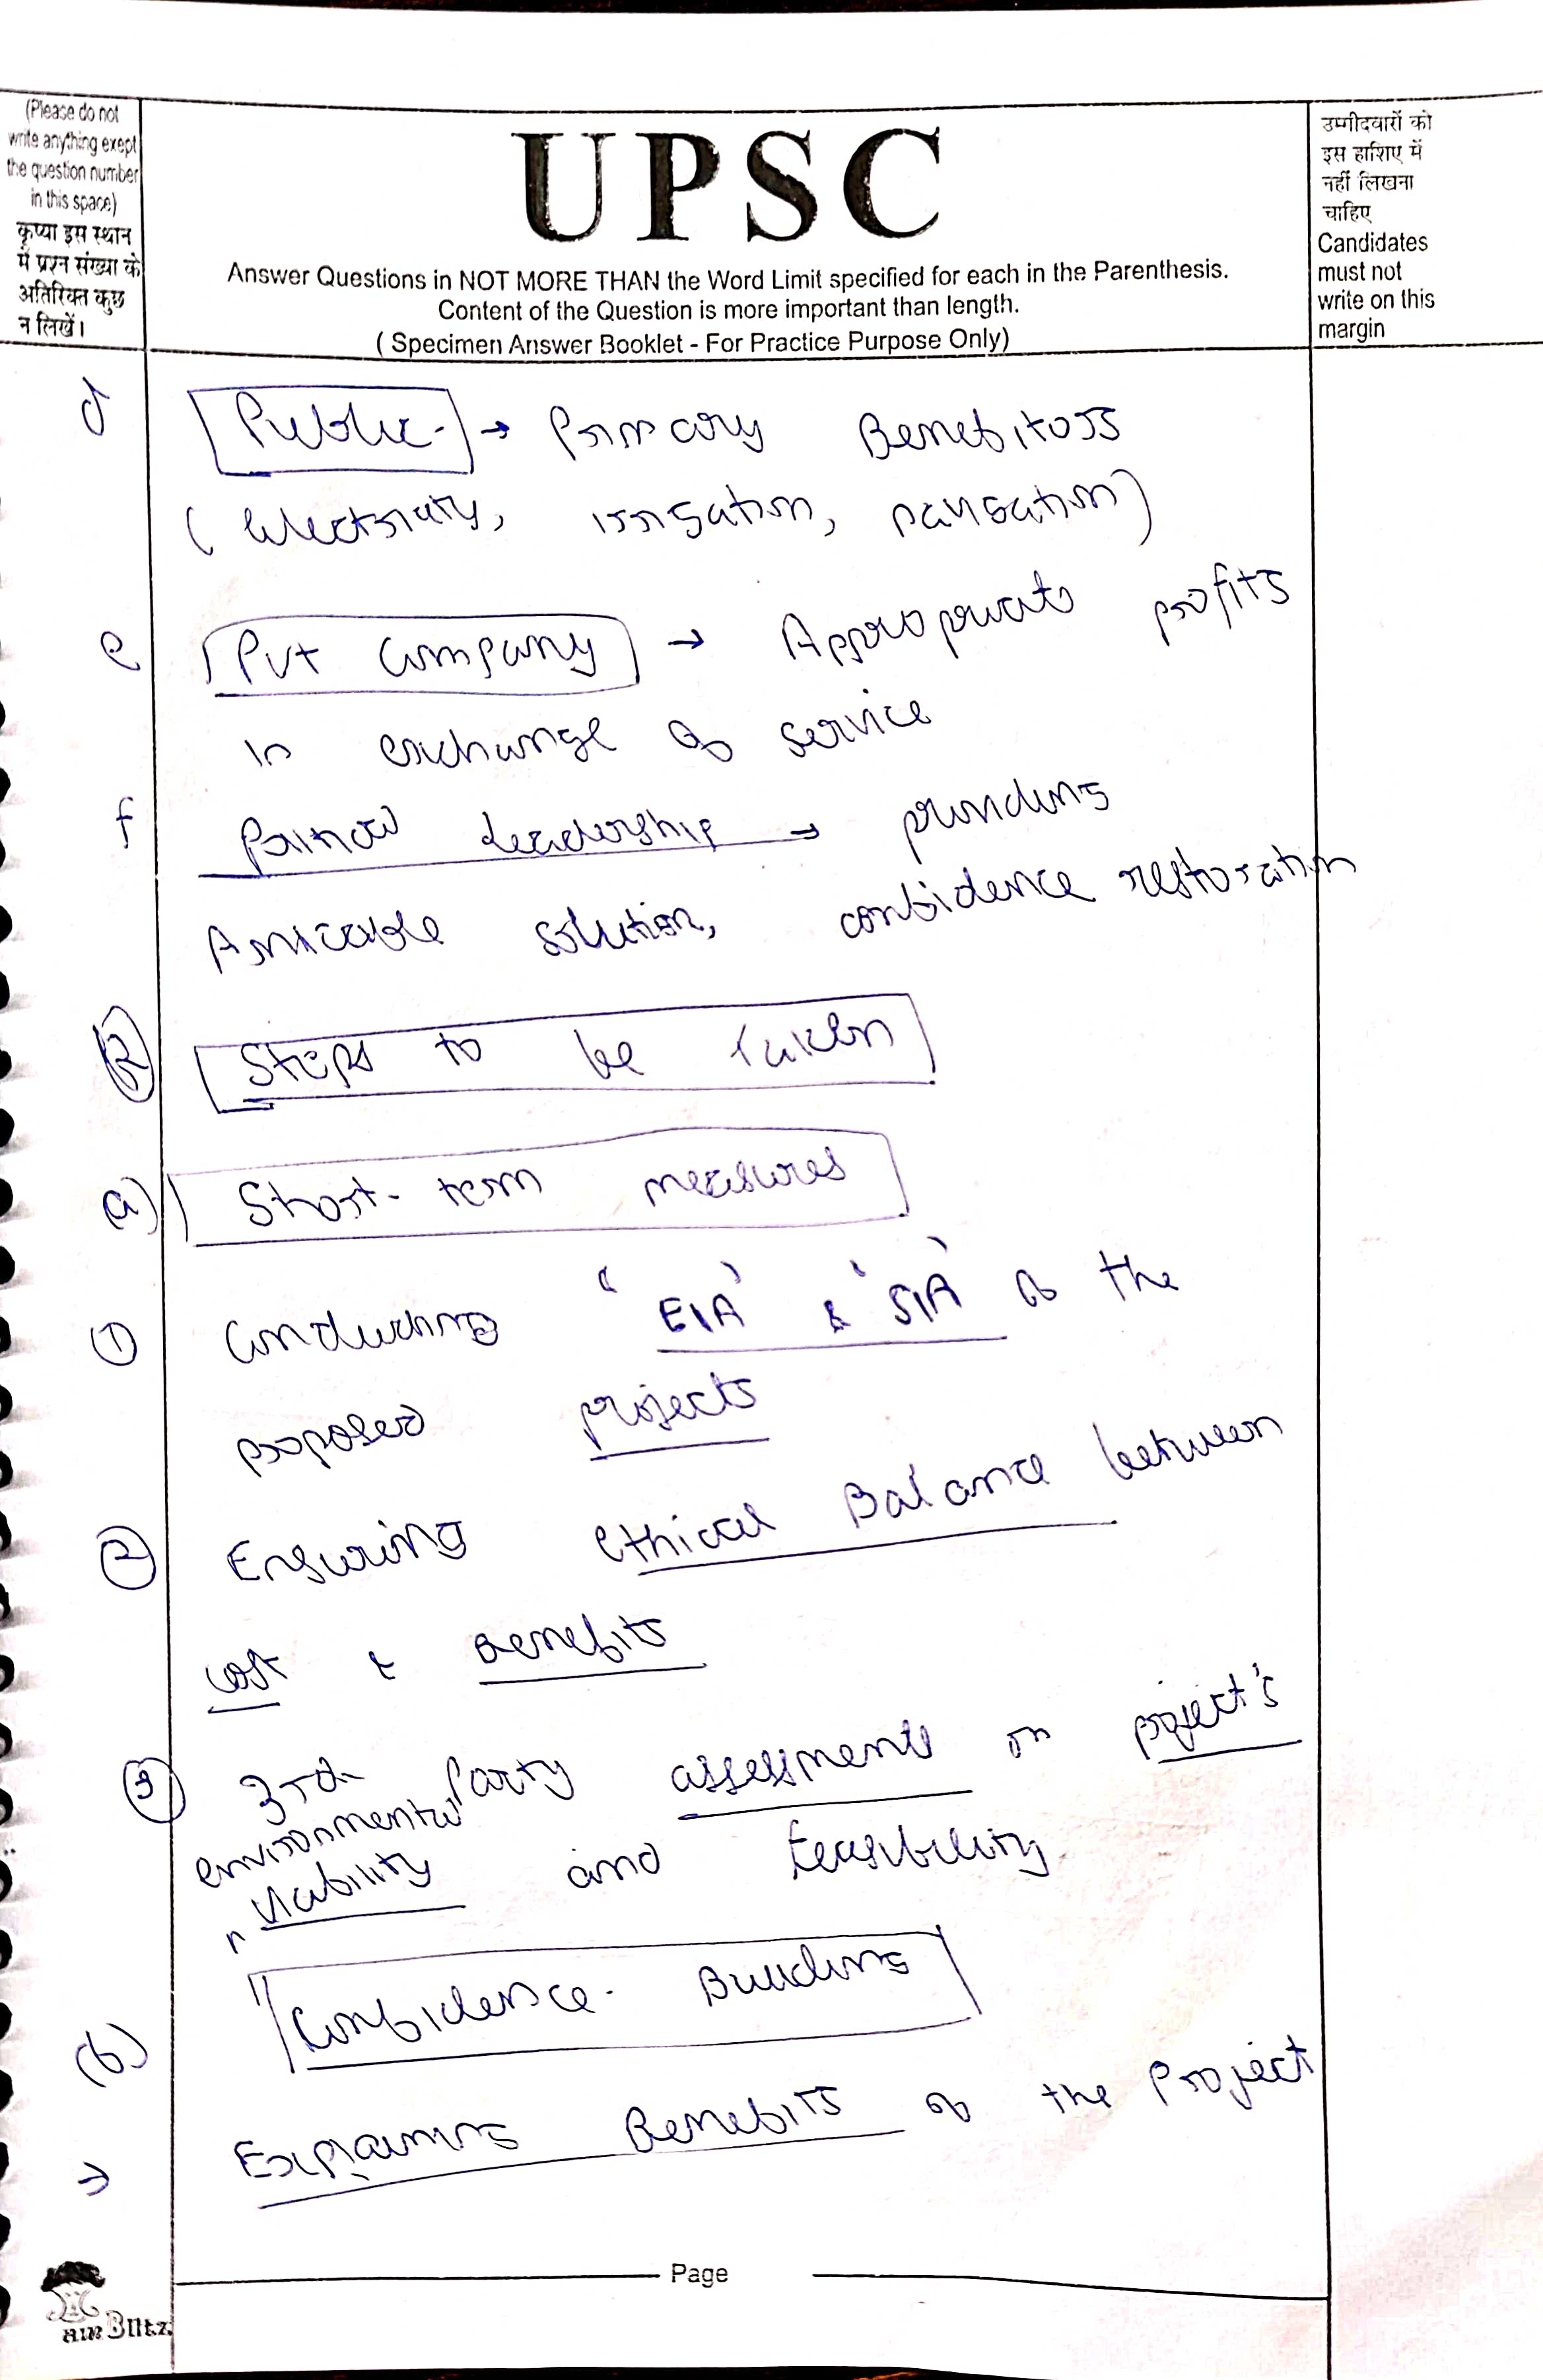 (Please do not
write anything exept
the question number
in this space)
कृप्या इस स्थान
में प्रश्न संख्या के
अतिरिक्त कुछ
न लिखें।
UPSC
Answer Questions in NOT MORE THAN the Word Limit specified for each in the Parenthesis.
Content of the Question is more important than length.
( Specimen Answer Booklet - For Practice Purpose Only)
उम्मीदवारों को
इस हाशिए में
नहीं लिखना
चाहिए
Candidates
must not
write on this
margin
d Public → Primary Benefitors
(electricity, irrigation, navigation)
e Pvt Company → Appropriate profits
in exchange of service
f Political Leadership → providing
Amicable solution, confidence restoration
② Steps to be taken
(a) Short-term measures
① Conducting 'EIA' & 'SIA' of the
proposed projects
② Ensuring ethical Balance between
cost & Benefits
③ 3rd Party assessments on project's
environmental
viability and feasibility
(b) Confidence-Building
→ Explaining Benefits of the Project
Page
Blitz